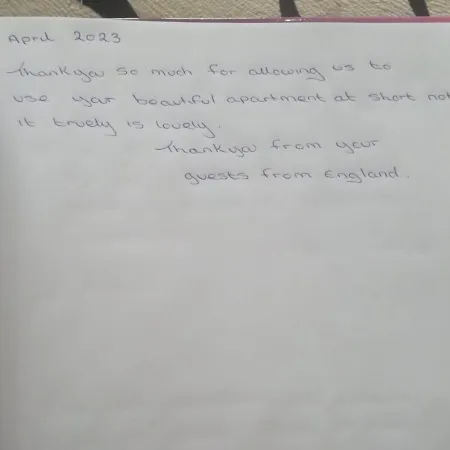 April 2023
Thankyou so much for allowing us to
use your beautiful apartment at short not
it truely is lovely.
Thankyou from your
guests from England.